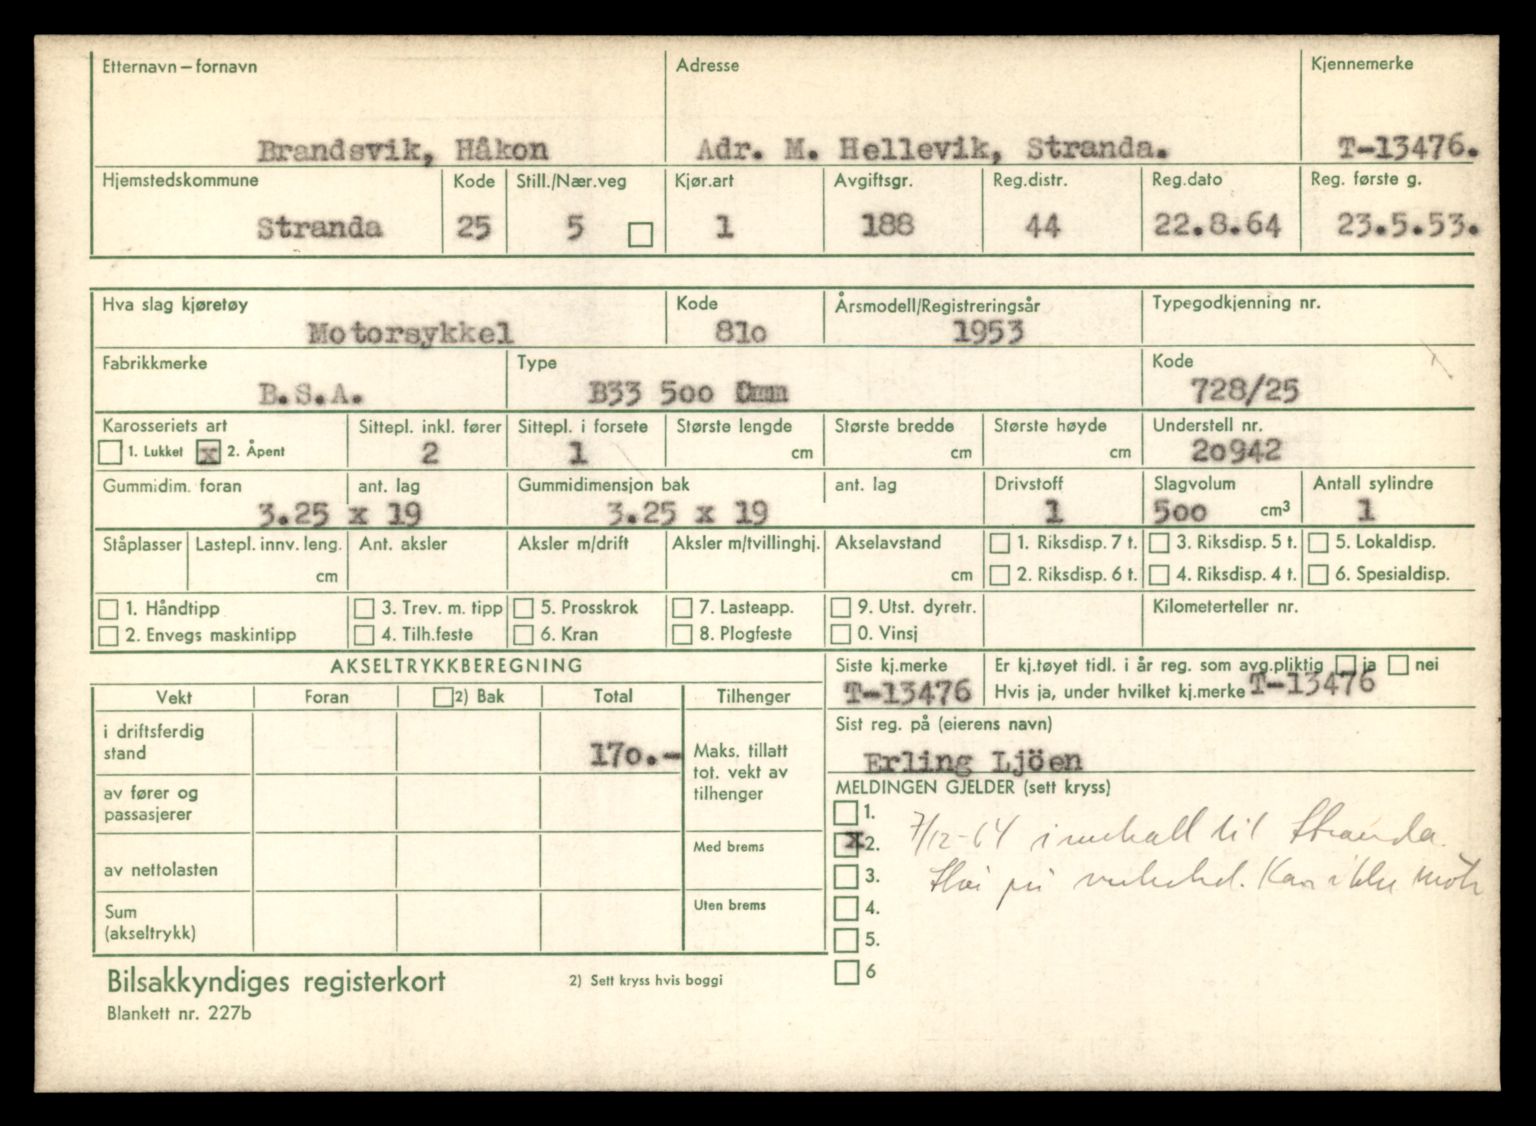 Etternavn – fornavn Adresse Kjennemerke
Brandsvik, Håkon Adr. M. Hellevik, Stranda. T-13476.
Hjemstedskommune Kode Still./Nær.veg Kjør.art Avgiftsgr. Reg.distr. Reg.dato Reg. første g.
Stranda 25 5 1 188 44 22.8.64 23.5.53.
Hva slag kjøretøy Kode Årsmodell/Registreringsår Typegodkjenning nr.
Motorsykkel 81o 1953
Fabrikkmerke Type Kode
B.S.A. B33 5oo 728/25
Karosseriets art Sittepl. inkl. fører Sittepl. i forsete Største lengde Største bredde Største høyde Understell nr.
1. Lukket x 2. Åpent 2 1 cm cm cm 2o942
Gummidim. foran ant. lag Gummidimensjon bak ant. lag Drivstoff Slagvolum Antall sylindre
3.25 x 19 3.25 x 19 1 5oo cm³ 1
Ståplasser Lastepl. innv. leng. Ant. aksler Aksler m/drift Aksler m/tvillinghj. Akselavstand 1. Riksdisp. 7 t. 3. Riksdisp. 5 t. 5. Lokaldisp.
cm cm 2. Riksdisp. 6 t. 4. Riksdisp. 4 t. 6. Spesialdisp.
1. Håndtipp 3. Trev. m. tipp 5. Prosskrok 7. Lasteapp. 9. Utst. dyretr. Kilometerteller nr.
2. Envegs maskintipp 4. Tilh.feste 6. Kran 8. Plogfeste 0. Vinsj
AKSELTRYKKBEREGNING Siste kj.merke Er kj.tøyet tidl. i år reg. som avg.pliktig ja nei
T-13476 Hvis ja, under hvilket kj.merke T-13476
Vekt Foran 2) Bak Total Tilhenger
Sist reg. på (eierens navn)
i driftsferdig
stand 17o.- Maks. tillatt
tot. vekt av
tilhenger
Erling Ljöen
MELDINGEN GJELDER (sett kryss)
av fører og
passasjerer
1.
x 2. 7/12-64 innkalt til Stranda.
Med brems
av nettolasten 3. på Kan ikke
Sum
(akseltrykk) Uten brems 4.
5.
6
Bilsakkyndiges registerkort 2) Sett kryss hvis boggi
Blankett nr. 227b